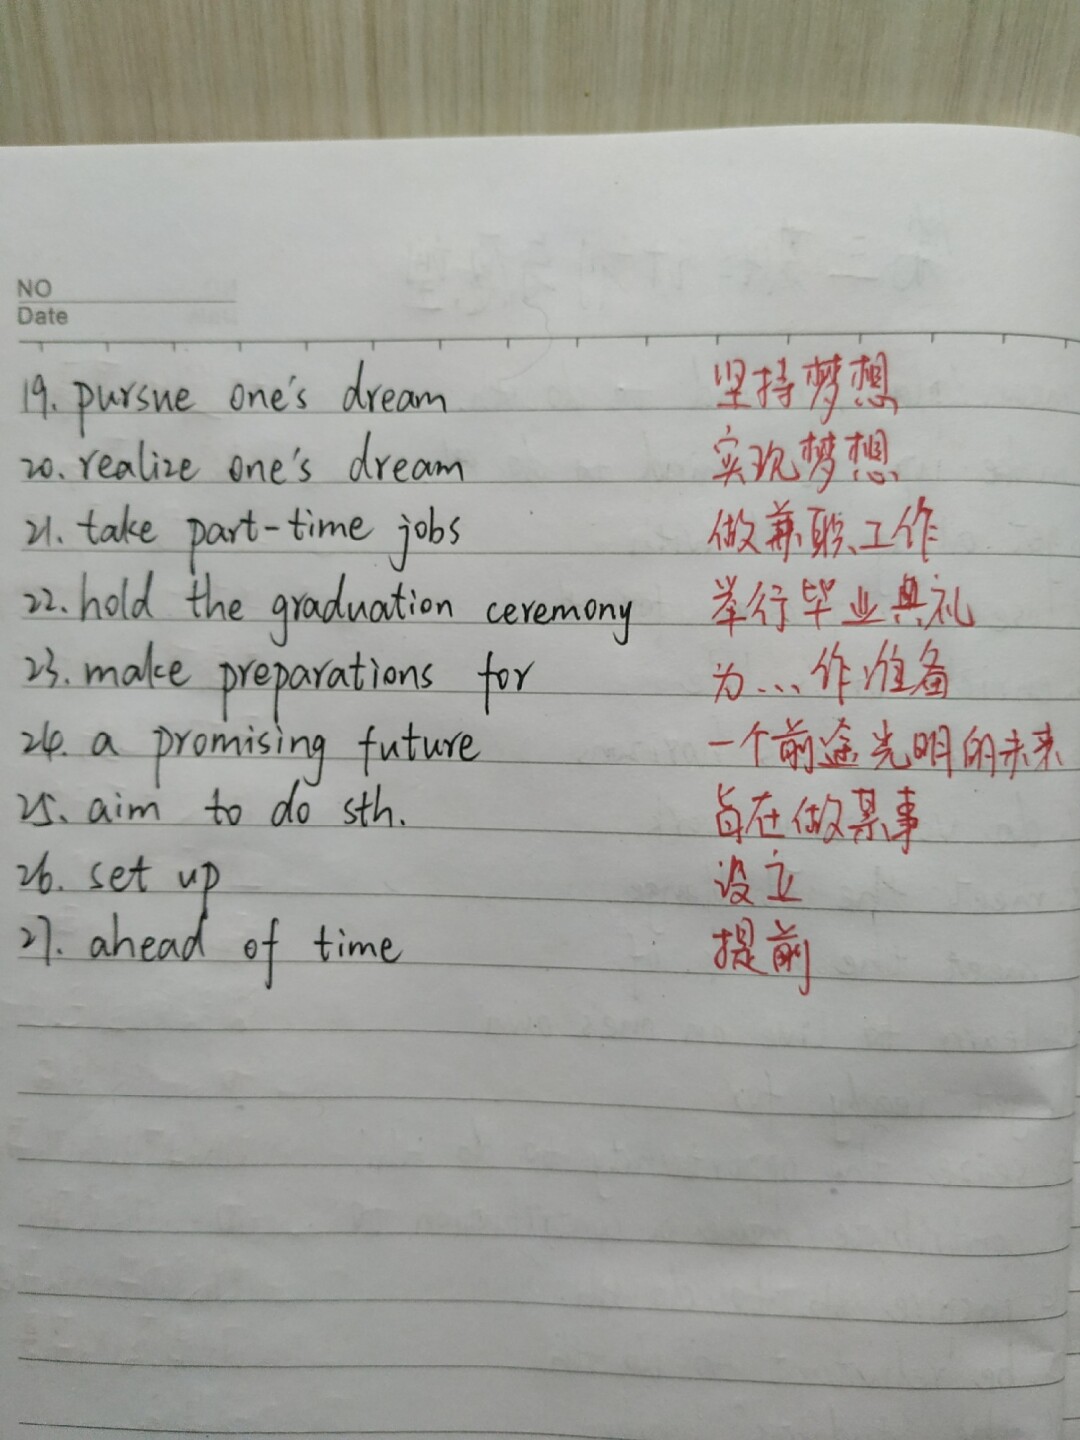 NO
Date
19. pursue one's dream 坚持梦想
20. realize one's dream 实现梦想
21. take part-time jobs 做兼职工作
22. hold the graduation ceremony 举行毕业典礼
23. make preparations for 为...作准备
24. a promising future 一个前途光明的未来
25. aim to do sth. 旨在做某事
26. set up 设立
27. ahead of time 提前